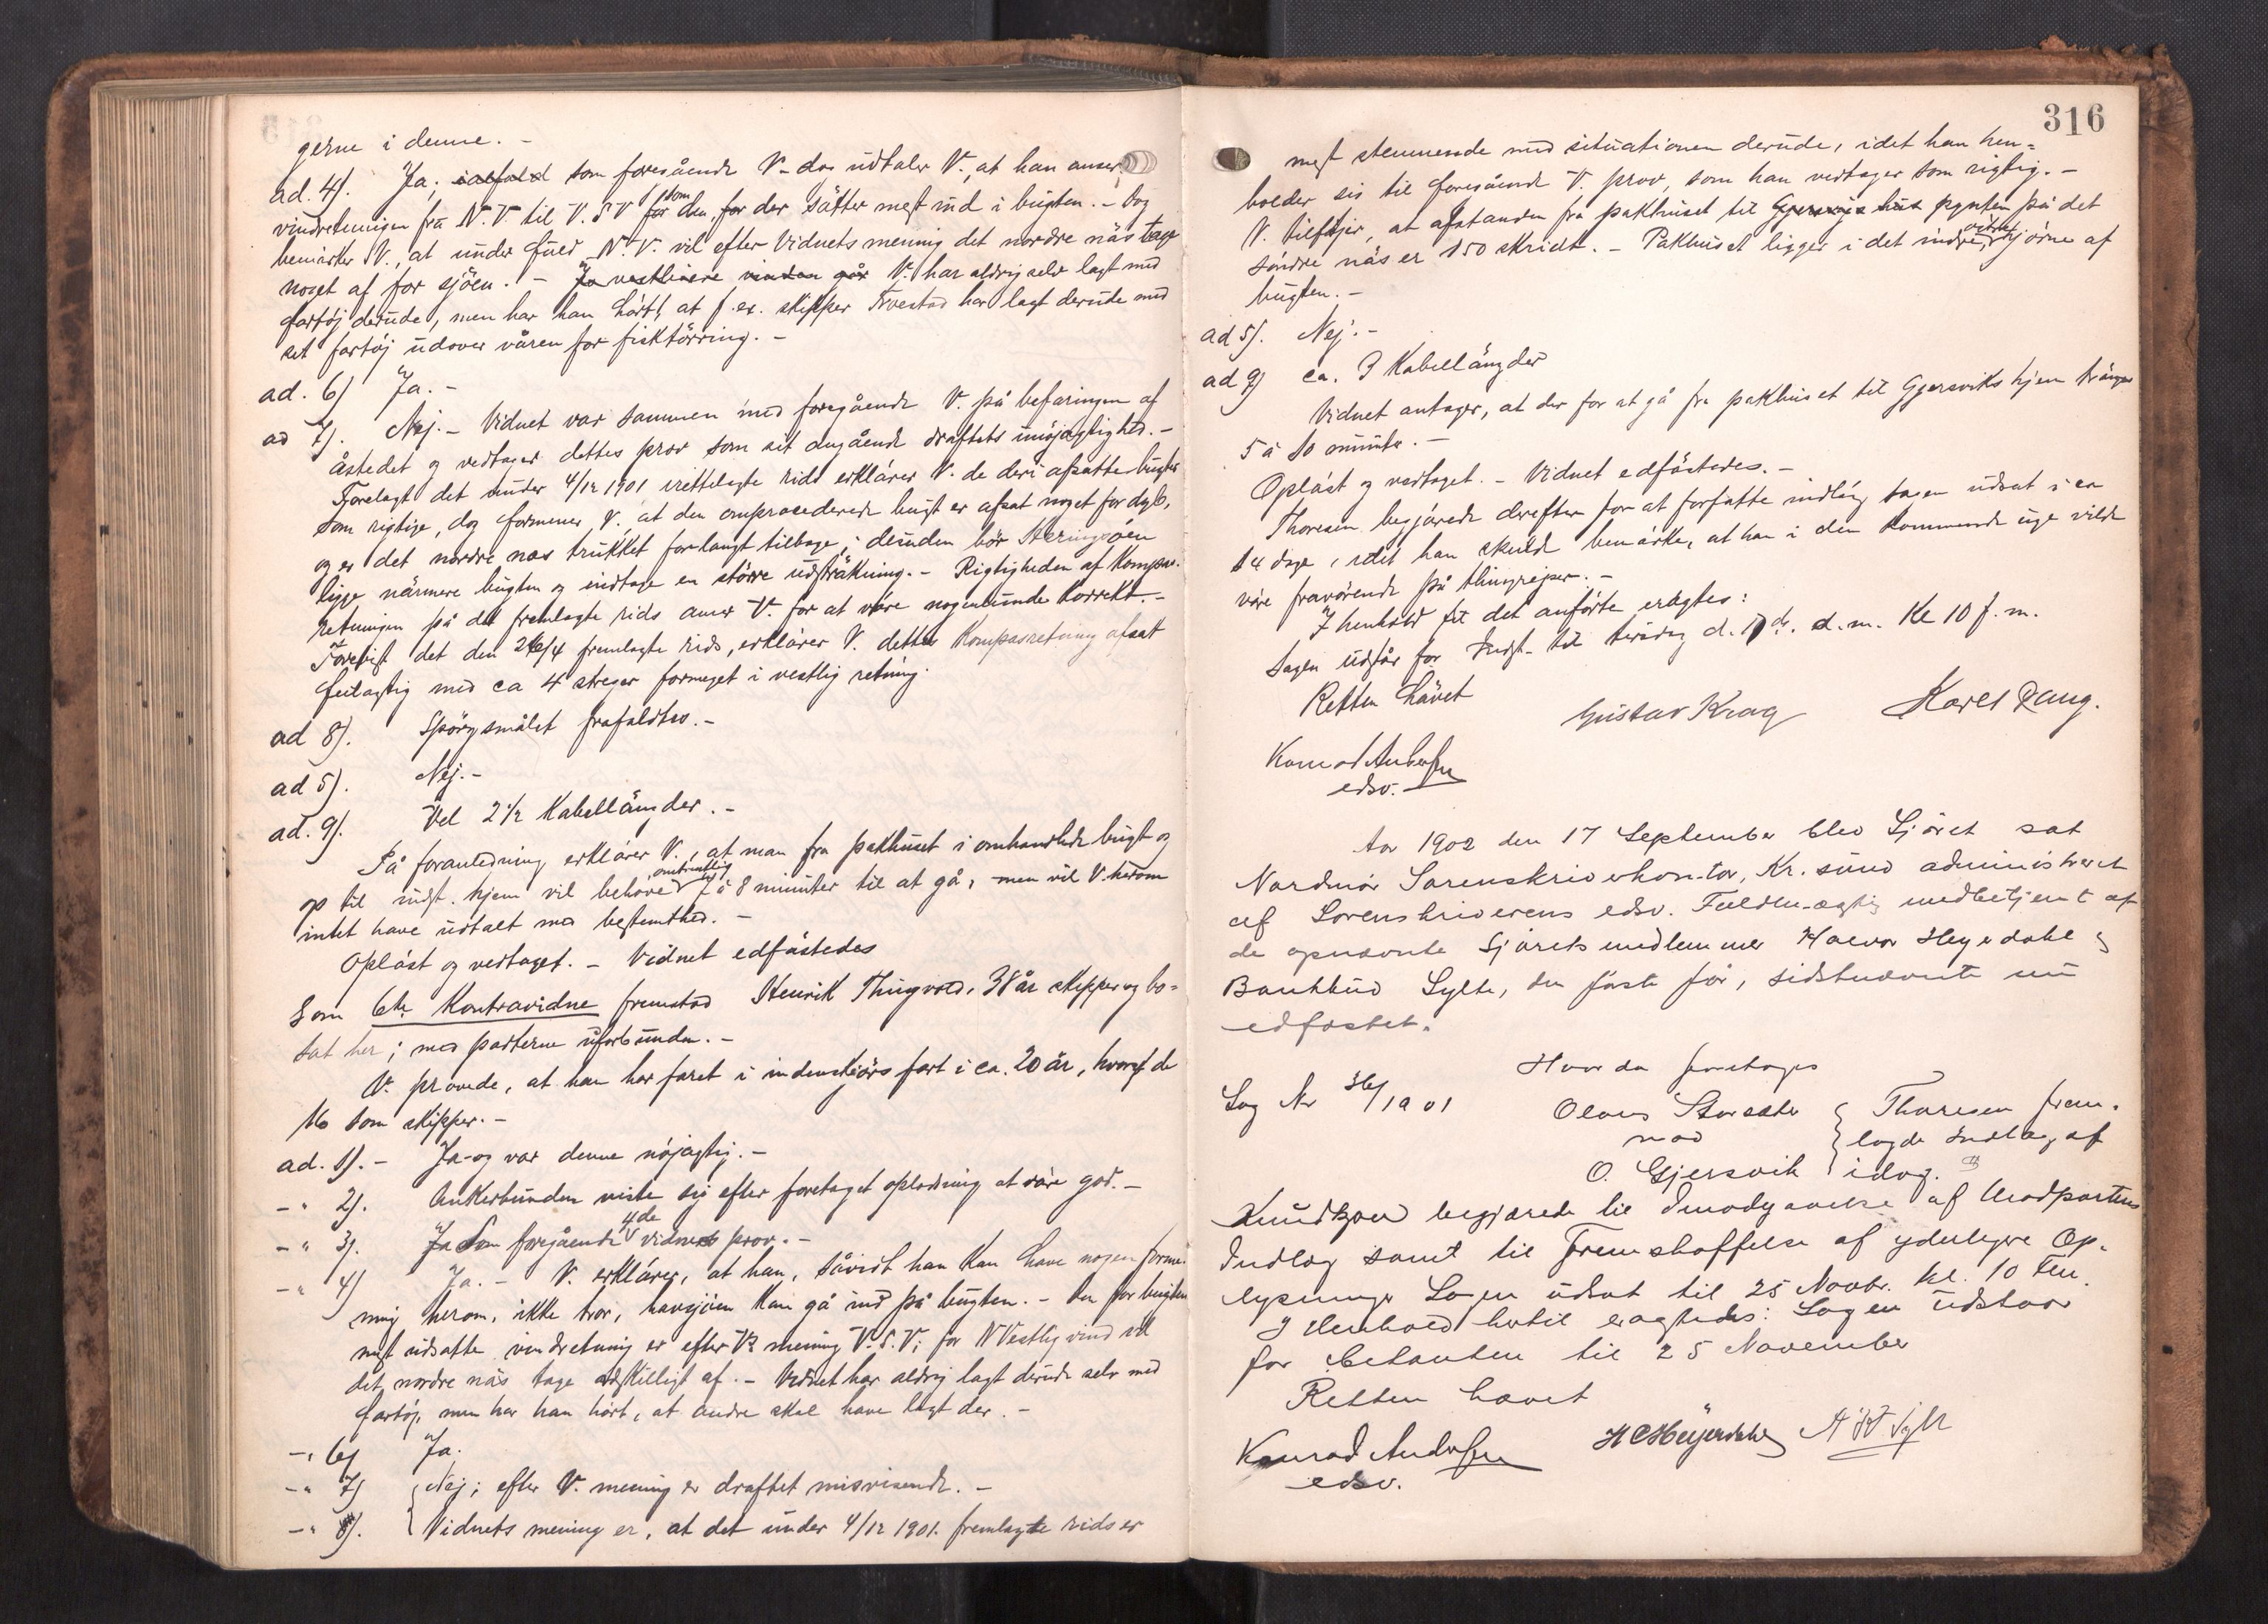 gerne i denne. -
ad. 4). Ja; ialfald som foregående V. dog udtaler V., at han anser
vindretningen fra N.V. til V.S.V for som den, for der sätter mest ind i bugten. - Dog
bemärker V., at under fuld N.V. vil efter Vidnets mening det nordre näs tage
noget af for sjöen. - Jo vestligere vinden går V. har aldrig selv lagt med
fartöj derude, men har han hört, at f.ex. skipper Tvestad har lagt derude med
sit fartöj udover våren for fisktörring. -
ad. 6) Ja. -
ad 7). Nej. - Vidnet var sammen med foregående V. på befaringen af
åstedet og vedtager dettes prov som sit angående draftets unöjagtighed. -
Forelagt det under 4/12 1901 irettelagte rids erklärer V. de deri afsatte bugter
som rigtige, dog formener V. at den omprocederede bugt er afsat noget for dyb,
og er det nordre nas trukket forlangt tilbage; desuden bör Steringsöen
ligge närmere bugten og indtage en större udsträkning. - Rigtigheden af Kompas-
retningen på det fremlagte rids anser V. for at väre nogenlunde korrekt. -
Forevist det den 26/4 fremlagte rids, erklärer V. dettes Kompasretning afsatt
feilagtig med ca 4 streger formeget i vestlig retning.
ad 8). Spörgsmålet frafaldtes. -
ad 5). Nej. -
ad. 9). Vel 2 1/2 Kabellängder. -
På foranledning erklärer V., at man fra pakhuset i omhandlede bugt og
op til indst. hjem vil behöve omtrentlig 7 à 8 minuter til at gå, men vil V. herom
intet have udtalt med bestemthed. -
Opläst og vedtaget. - Vidnet edfästedes
Som 6te Kontravidne fremstod Henrik Thingvold, 38 år skipper og bo-
sat her; med parterne uforbunden. -
V. provede, at han har faret i indenskjärs fart i ca. 20 år, hvoraf de
16 som skipper. -
ad. 1). - Ja - og var denne nöjagtig. -
- " 2). Ankerbunden viste sig efter foretaget oplodning at väre god. -
- " 3). Ja Som foregående 4de vidnes prov. -
- " 4) Ja. - V. erklärer, at han, såvidt han kan have nogen forme-
ning herom, ikke tror, havsjöen kan gå ind på bugten. - Den for bugten
mest udsatte vindretning er efter V's mening V.S.V; for N Vestlig vind vil
det nordre näs tage adskilligt af. - Vidnet har aldrig lagt derude selv med
fartöj, men har han hört, at andre skal have lagt der. -
- " 6) Ja.
- " 7) Nej; efter V. mening er draftet misvisende. -
- " 8). Vidnets mening er, at det under 4/12 1901. fremlagte rids er
316
mest stemmende med situationen derude, idet han hen-
holder sig til foregående V. prov, som han vedtager som rigtig. -
V. tilföjer, at afstanden fra pakhuset til Gjersvigs hus pynten på det
söndre näs er 150 skridt. - Pakhuset ligger i det indre hjörne af
bugten. -
ad 5). Nej. -
ad 9) ca. 3 Kabellängder
Vidnet antager, at der for at gå fra pakhuset til Gjersviks hjem tränges
5 à 10 minuter. -
Opläst og vedtaget. - Vidnet edfästedes. -
Thoresen begjärede derefter for at forfatte indläg sagen udsat i ca
14 dage, idet han skulde bemärke, at han i den kommende uge vilde
väre fravärende på thingrejser. -
I henhold til det anförte eragtes:
Sagen udstår for Indst. til tirsdag d. 17 de. d.m. Kl 10 f.m.
Retten hävet
Gustav Krag Karel Rang.
Konrad Andersen
edsv.
Aar 1902 den 17 September blev Sjöret sat
Nordmör Sorenskriverkontor, Kr.sund administreret
af Sorenskriverens edsv. Fuldmægtig medbetjent af
de opnævnte Sjöretsmedlemmer Halvor Heyerdahl og
Bankbud Sylte, den förste för, sidstnævnte nu
edfæstet.
Hvor da foretoges
Sag Nr 36/1901 Olaus Storsæter Thoresen frem-
mod lagde Indlæg af
O. Gjersvik idag.
Knudtzon begjærede til Imødegaaelse af Modpartens
Indlæg samt til Fremskaffelse af yderligere Op-
lysninger Sagen udsat til 25 Novbr. kl. 10 Fm.
I Henhold hertil eragtedes: Sagen udstaar
for Citanten til 25 November
Retten hævet
Konrad Andersen HCHeyerdahl
edsv.